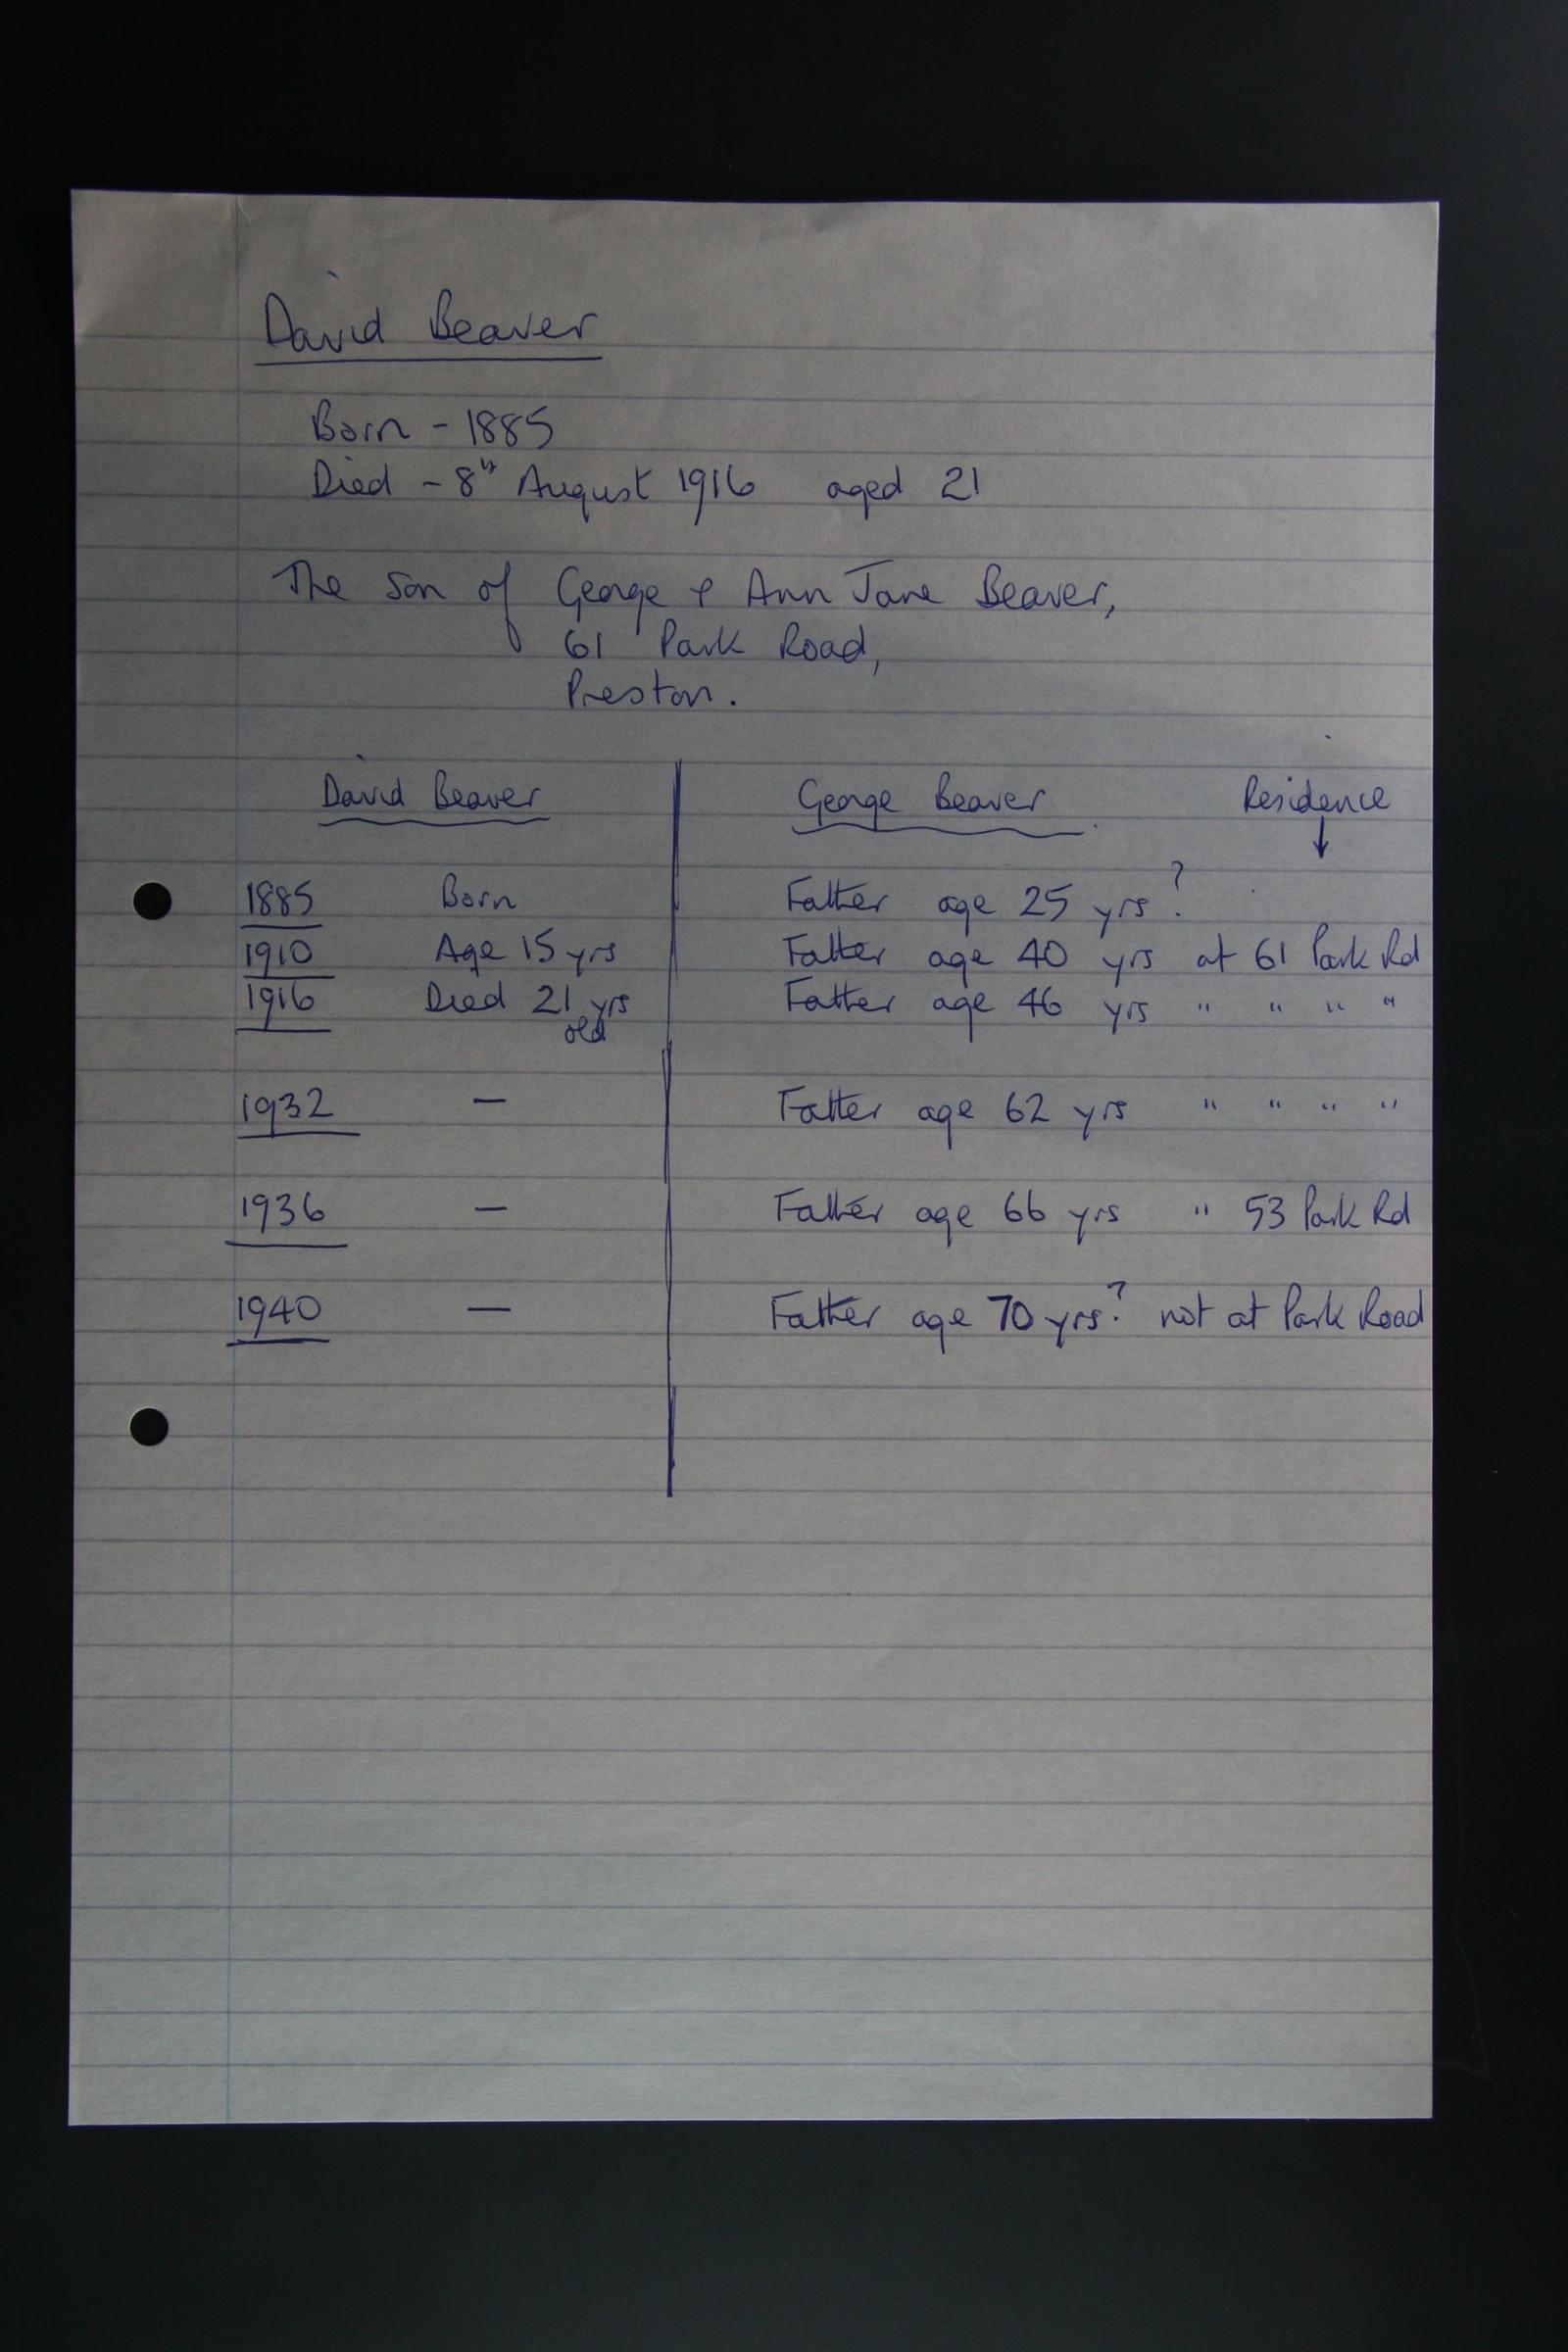 David Beaver
Born - 1885
Died - 8th August 1916 aged 21
The son of George & Ann Jane Beaver,
61 Park Road,
Preston.
David Beaver George Beaver Residence
↓
1885 Born Father age 25 yrs?
1910 Age 15 yrs Father age 40 yrs at 61 Park Rd
1916 Died 21 yrs Father age 46 yrs " " " "
old
1932 — Father age 62 yrs " " " "
1936 — Father age 66 yrs " 53 Park Rd
1940 — Father age 70 yrs? not at Park Road